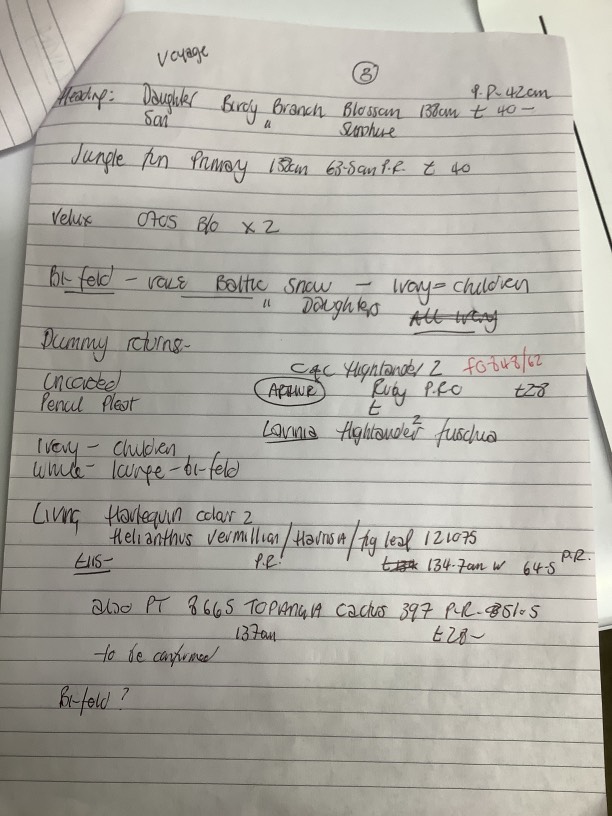 Voyage
3
P.R- 42cm
Heading: Daughter Birdy Branch Blossom 138cm £ 40-
Son " Sunshine
Jungle fun Primary 138cm 63-5cm P.R. £ 40
Velux 0705 B/o x 2
Bi-fold - Baltic Snow - Ivory = children
" Daughters All Ivory
Dummy returns-
C&C Highlander 2 F0848/62
Uncoated ARTHUR Ruby P.RO £28
Pencil Pleat £
Lavinia Highlander 2 fuschia
Ivory - children
White - lounge - bi-fold
Living Harlequin color 2
Helianthus Vermillion / / fig leaf 121075
£115- P.R. 134.7cm w 64-5 P.R.
also PT 8665 TOPIANGIA Cactus 397 P-R- 51.5
137cm £28-
-to be confirmed
Bi-fold ?